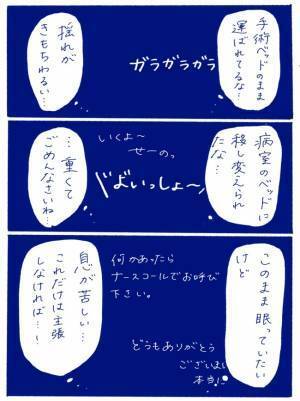 手術ベッドのまま
運ばれてるな…
ガラガラガラ
揺れが
きもちわるい…
病室のベッドに
移し変えられ
たな…
いくよ～
せーのっ
よいっしょ～
…重くて
ごめんなさいね…
このまま眠っていたい
けど
何かあったら
ナースコールでお呼び
下さい。
どうもありがとう
ございまし
本当に
息が苦しい…
これだけは主張
しなければ…!